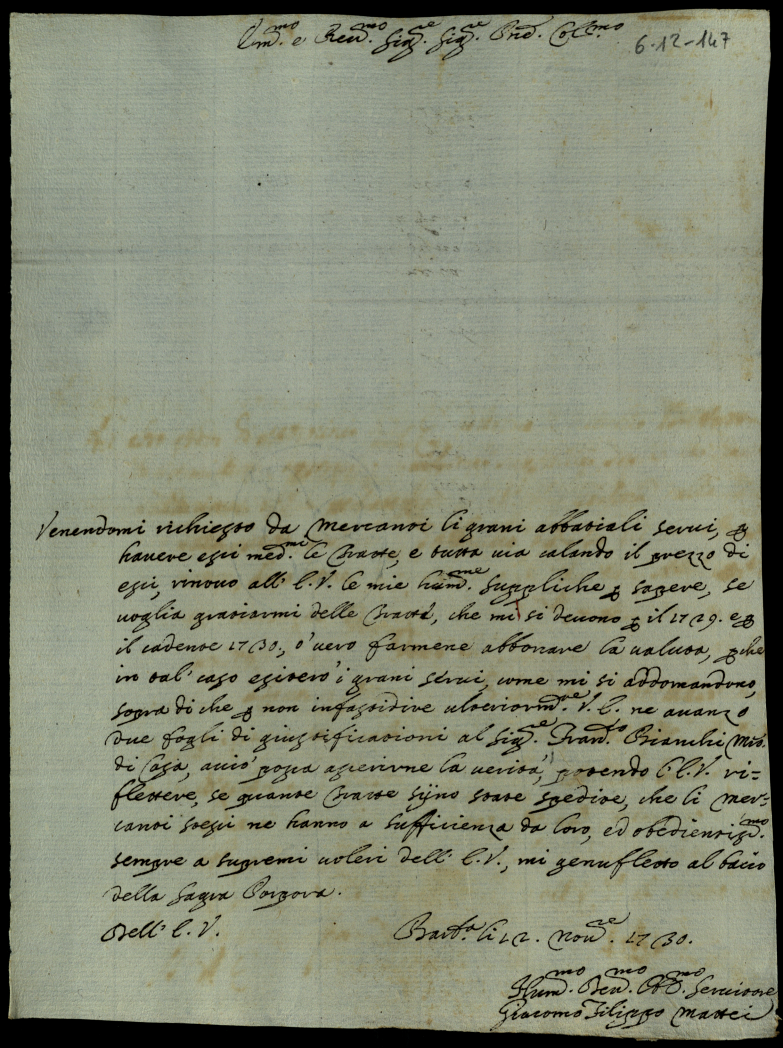 Em.mo e Reu.mo Sig.re Sig.re Prne. Col.mo
6-12-147
Venendomi richiesto da Mercanti li grani abbatiali secui, p
havere essi med.mi le Tratte, e tutta via calando il prezzo di
essi, rinovo all' E.V. le mie hum.me suppliche p sapere, se
voglia gratiarmi delle Tratte, che mi si devono p il 1729. e p
il cadente 1730., o' vero farmene abbonare la valuta, pche
in tal' caso esitero' i grani secui, come mi si addomandono,
sopra di che p non infastidire ulteriorm.te V.E. ne avanzo
due fogli di giustificationi al Sig.re Fran.co Bianchi M.ro
di Casa, accio' possa asserirne la verita', potendo l'E.V. ri=
flettere, se quante Tratte sijno state spedite, che li Mer=
canti stessi ne hanno a sufficienza da loro, ed obedientiss.mo
sempre a supremi voleri dell' E.V., mi genuflesso al bacio
della Sagra Porpora.
Dell' E.V.
Barb.a li 12. Nov.re 1730.
Hum.mo Deu.mo Obb.mo Servitore
Giacomo Filippo Mattei